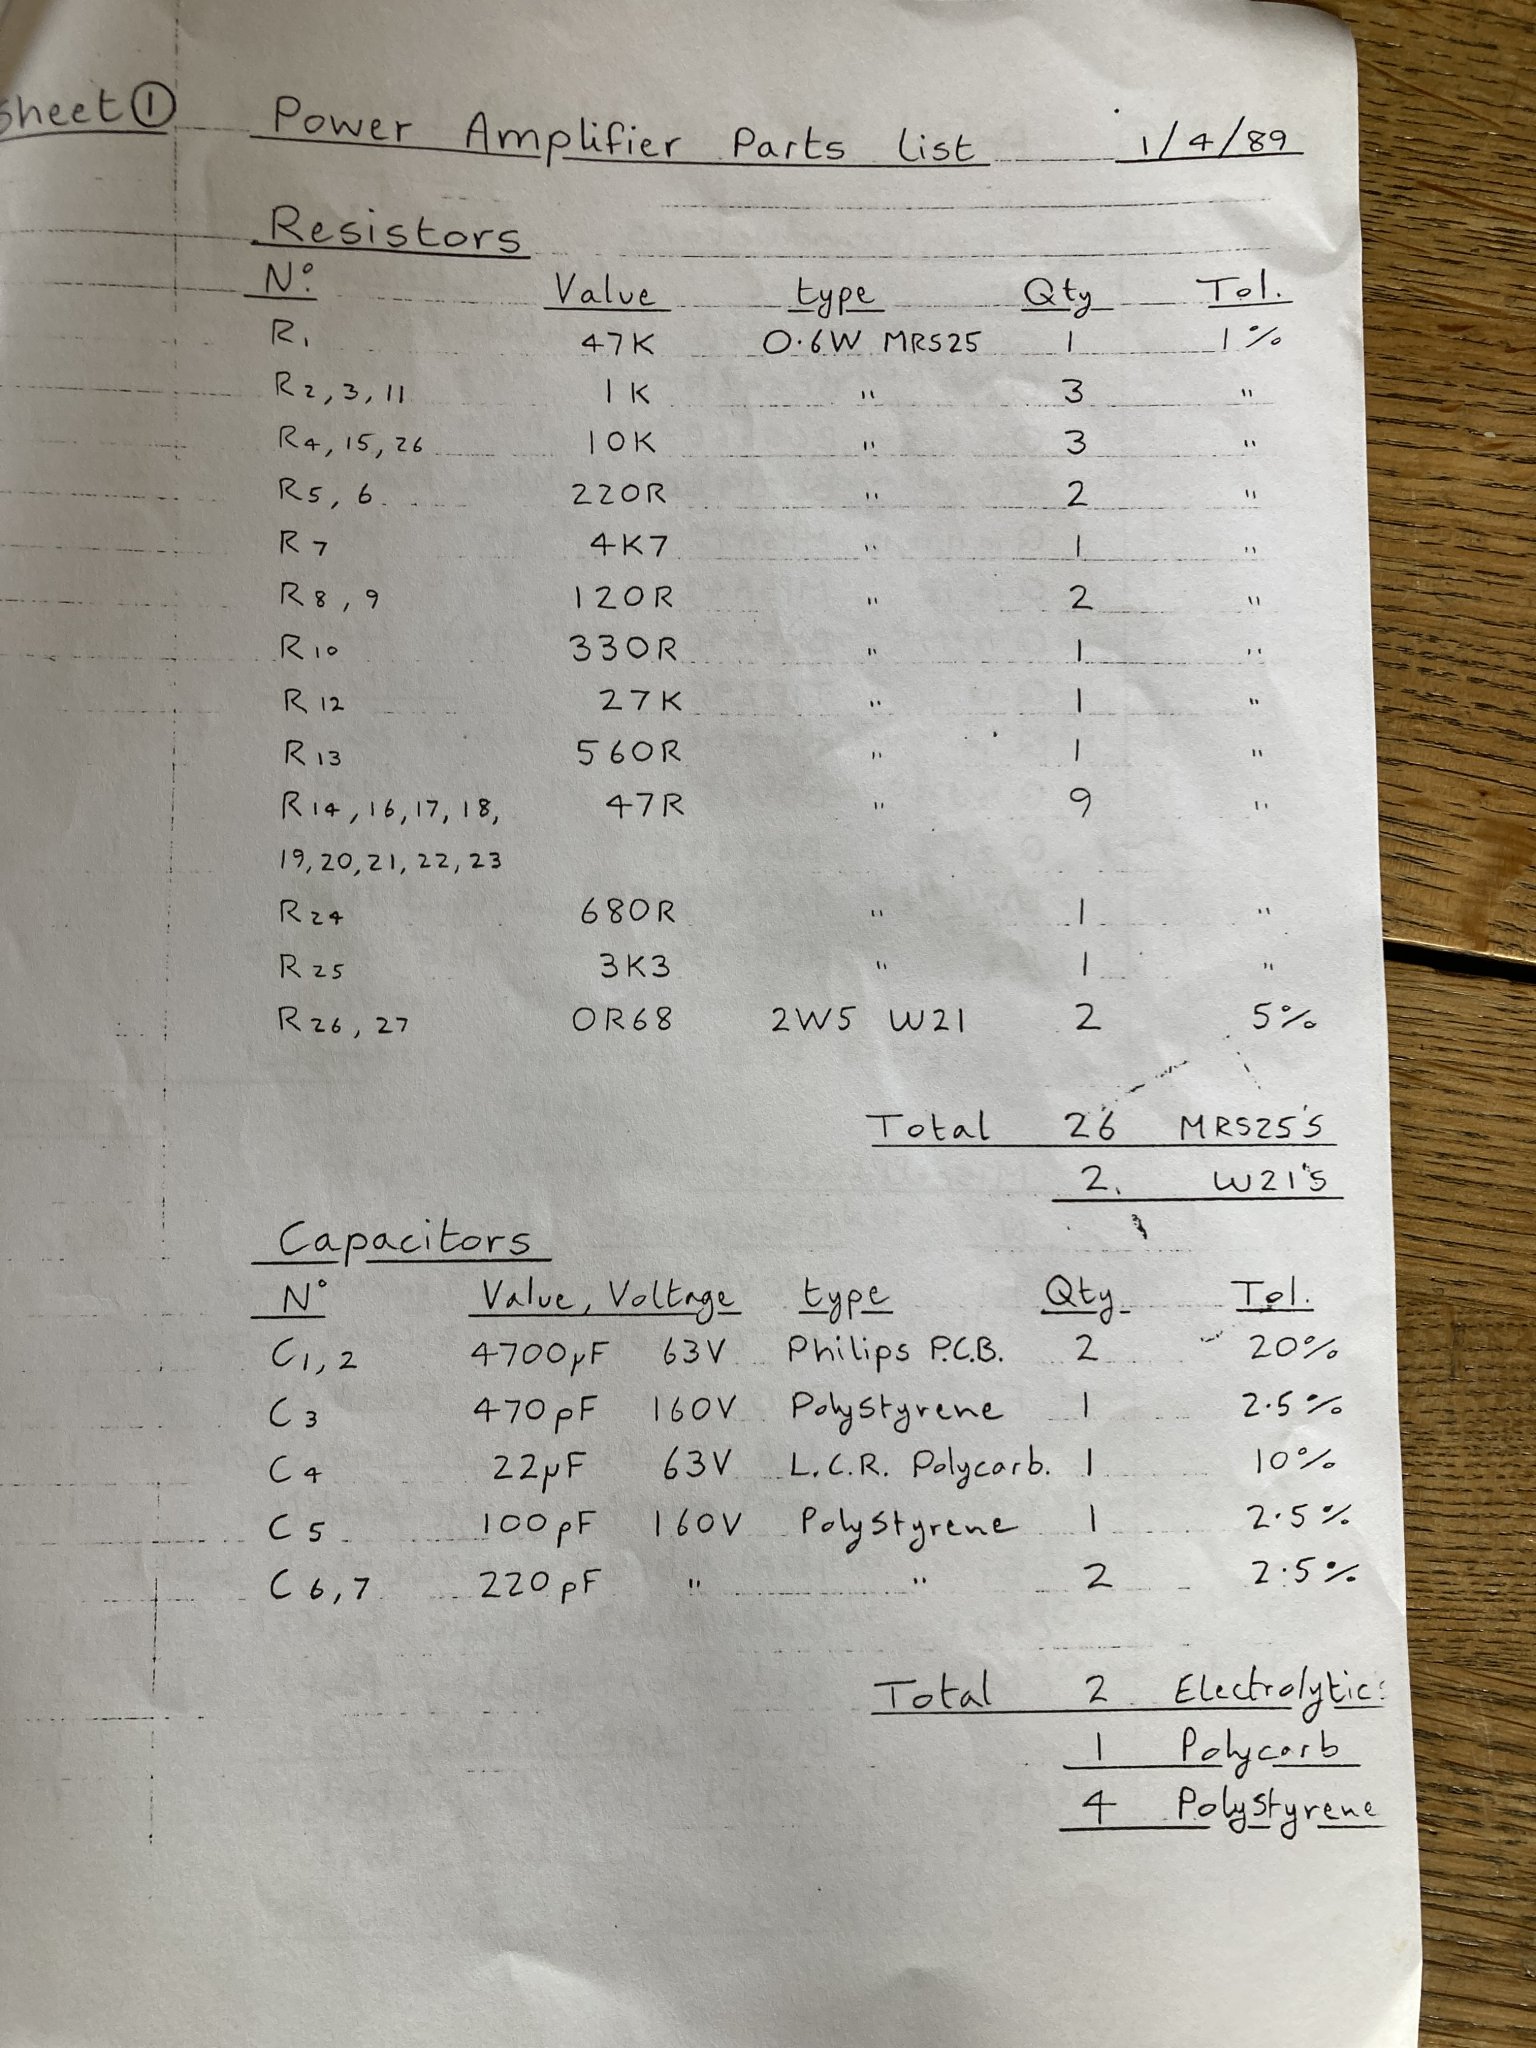 Sheet ① Power Amplifier Parts List 1/4/89
Resistors
Nº Value type Qty Tol.
R1 47K 0.6W MRS25 1 1%
R2,3,11 1K " 3 "
R4,15,26 10K " 3 "
R5,6 220R " 2 "
R7 4K7 " 1 "
R8,9 120R " 2 "
R10 330R " 1 "
R12 27K " 1 "
R13 560R " 1 "
R14,16,17,18, 47R " 9 "
19,20,21,22,23
R24 680R " 1 "
R25 3K3 " 1 "
R26,27 0R68 2W5 W21 2 5%
Total 26 MRS25's
2. W21's
Capacitors
Nº Value, Voltage type Qty Tol.
C1,2 4700µF 63V Philips P.C.B. 2 20%
C3 470pF 160V Polystyrene 1 2.5%
C4 22µF 63V L.C.R. Polycarb. 1 10%
C5 100pF 160V Polystyrene 1 2.5%
C6,7 220pF " " 2 2.5%
Total 2 Electrolytics
1 Polycarb
4 Polystyrene